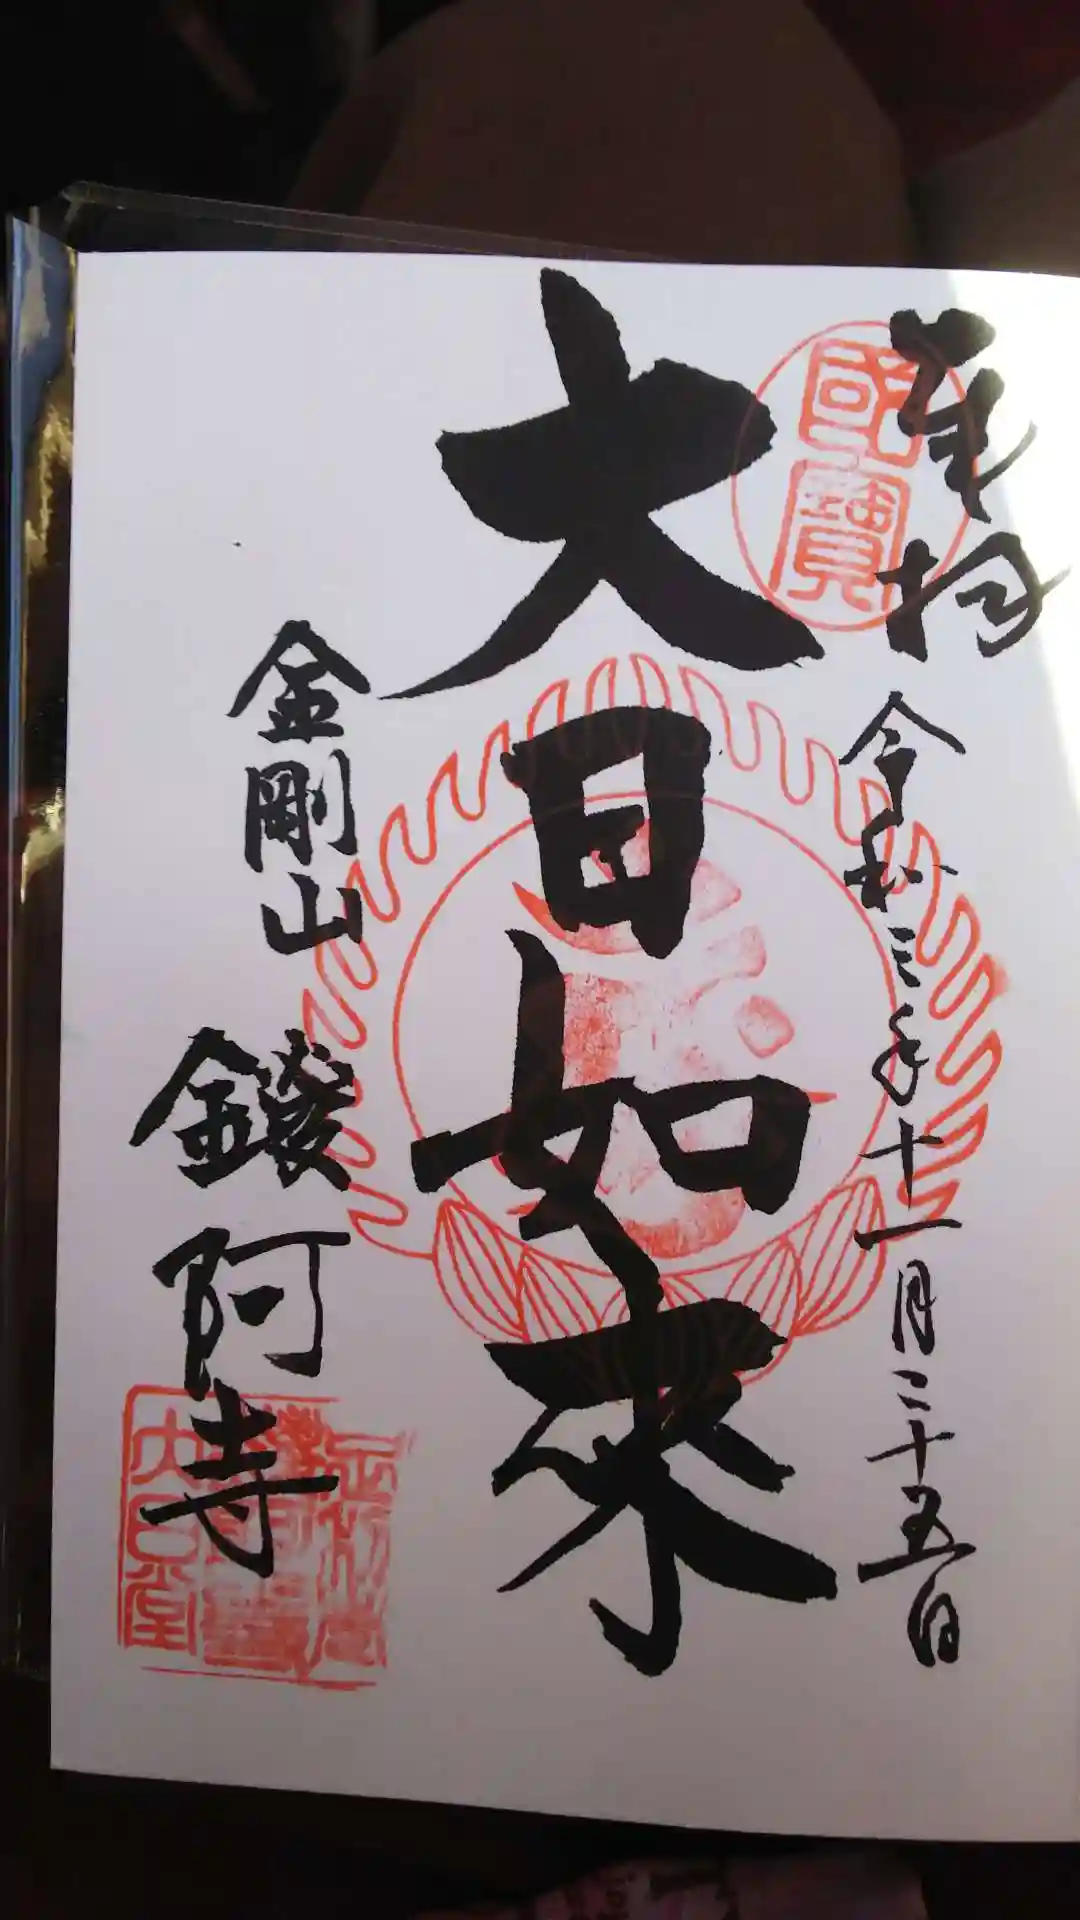 奉拝
令和三年十一月二十五日
國寶
大日如来
金剛山
鑁阿寺
大日堂